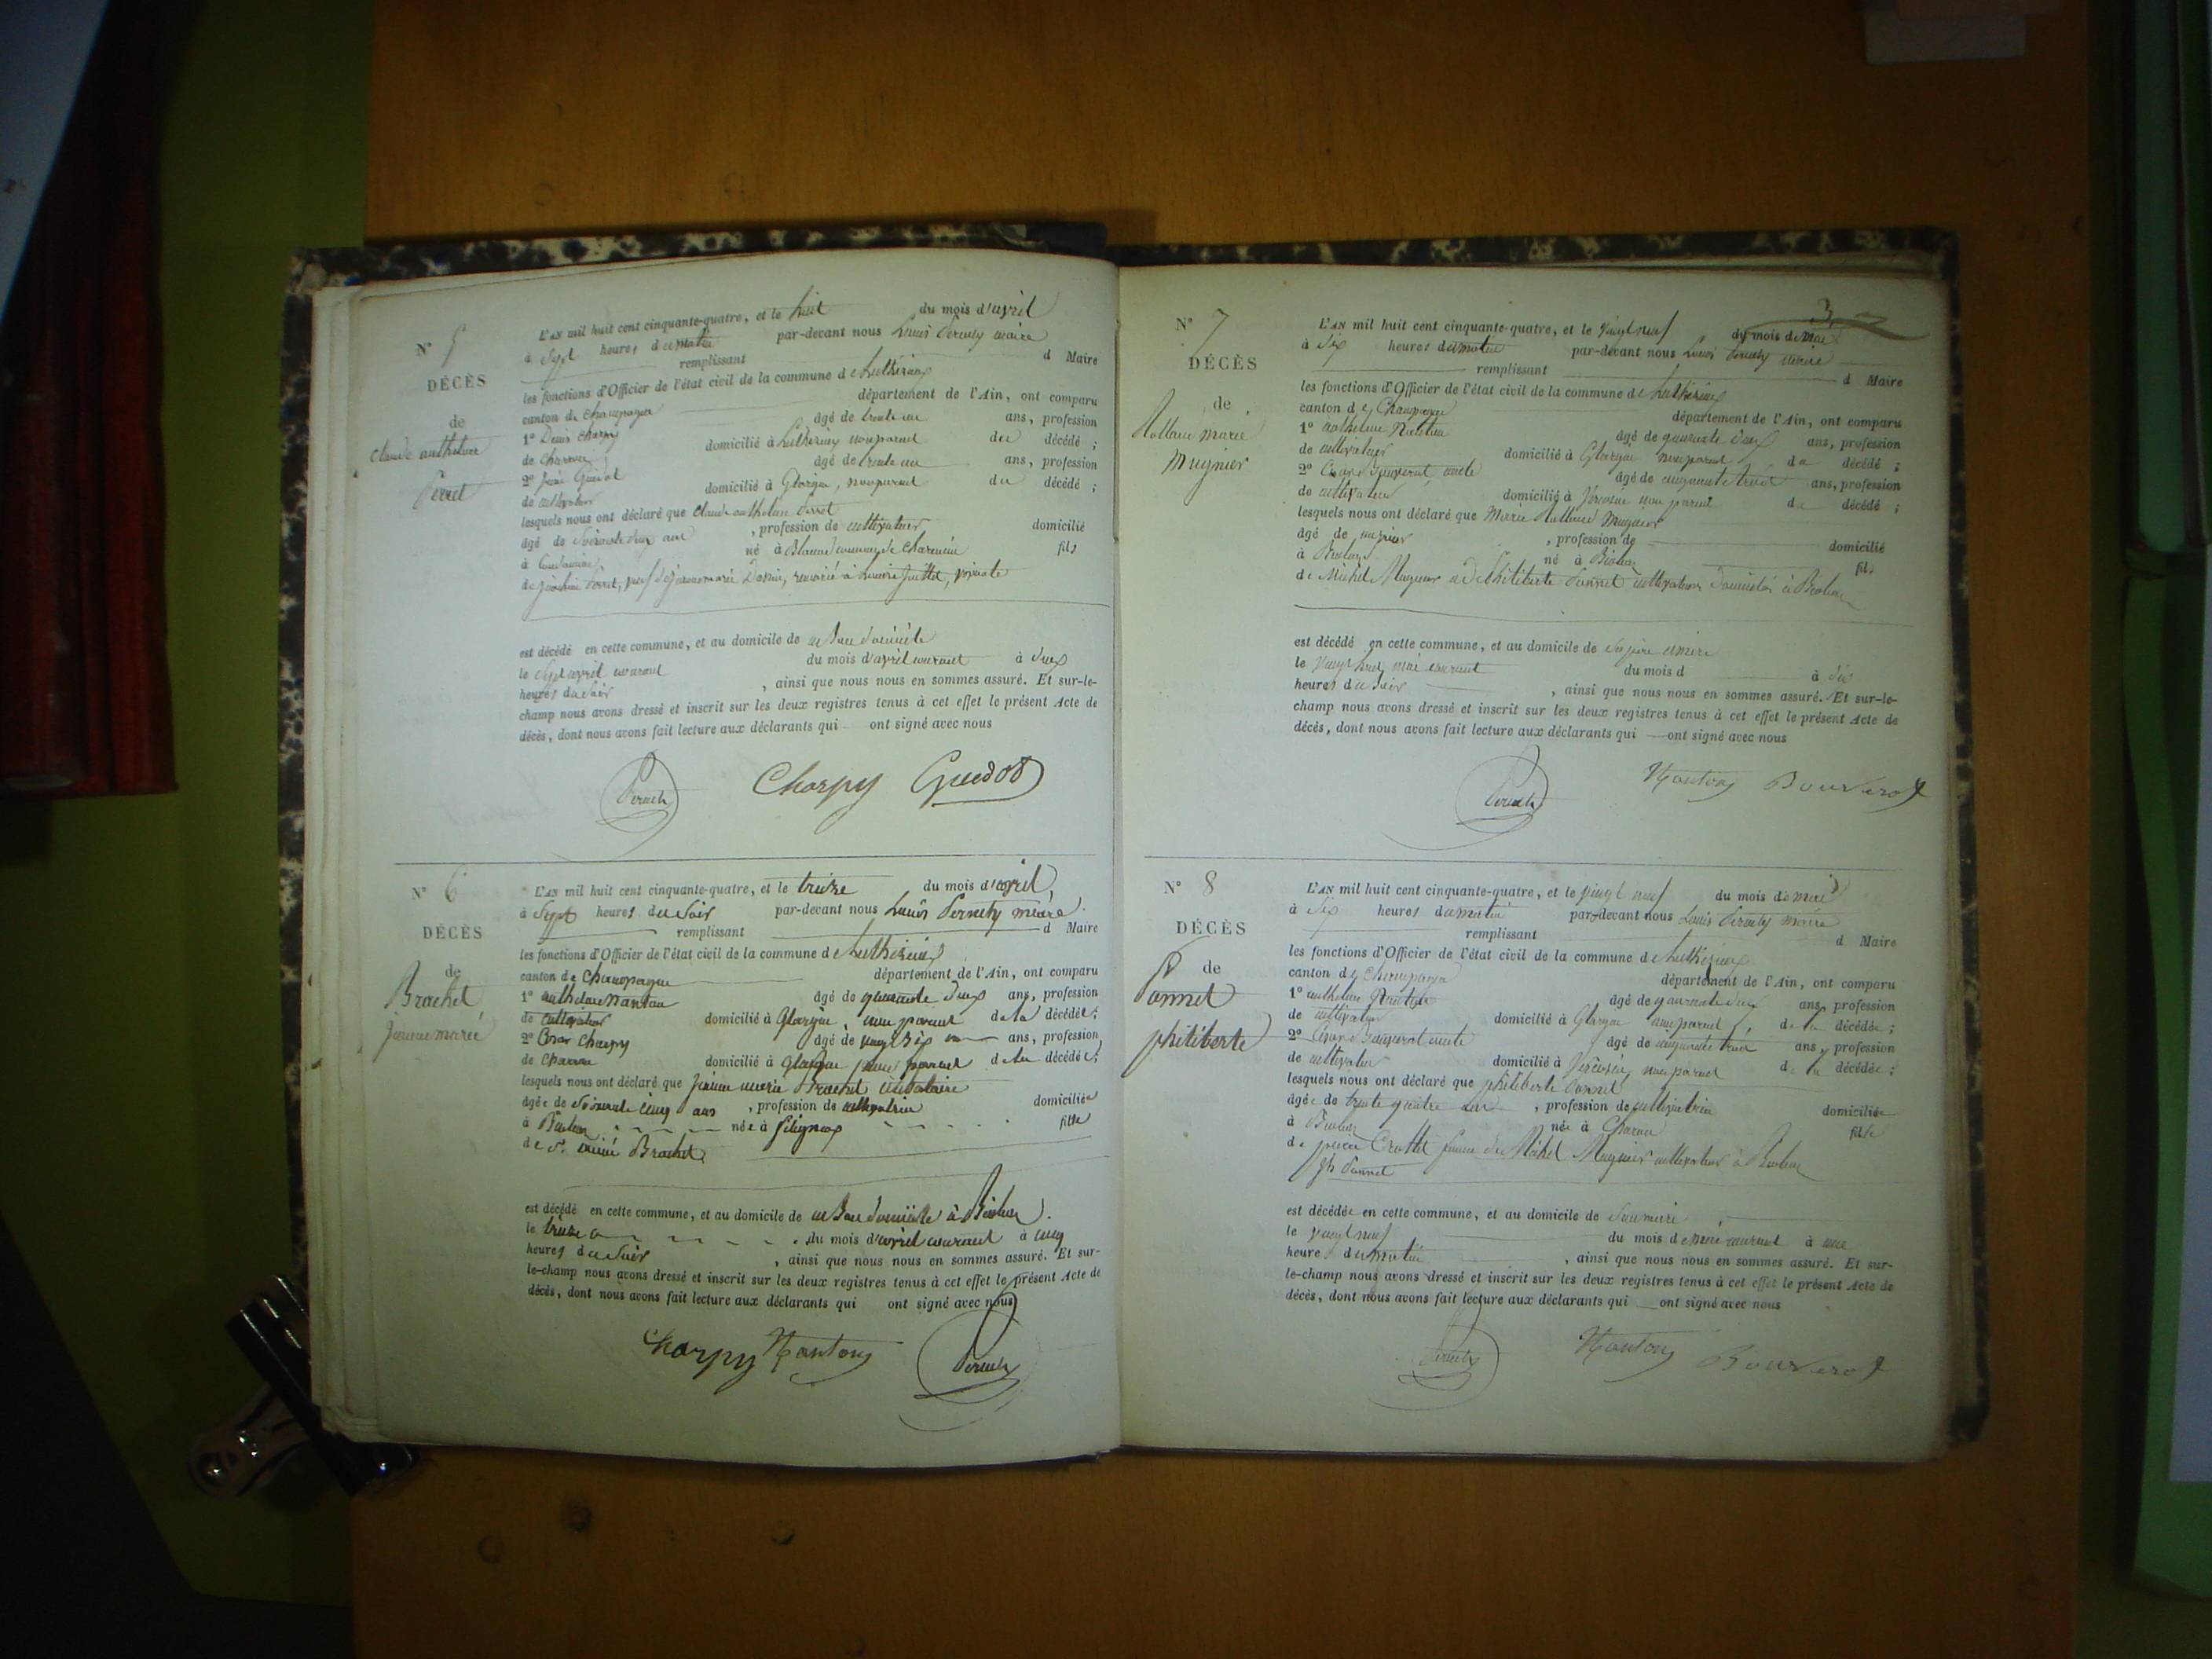 N° 5
DÉCÈS
de
Claude anthelme
Perret
L'AN mil huit cent cinquante-quatre, et le huit du mois d'avril
à Sept heures du matin par-devant nous Louis Pernety maire
remplissant d Maire
les fonctions d'Officier de l'état civil de la commune de Luthézieu
canton de Champagne département de l'Ain, ont comparu
1° Denis Charpy âgé de trente un ans, profession
de charron domicilié à Luthézieu non parent du décédé ;
2° âgé de trente un ans, profession
de cultivateur domicilié à Glargin, non parent du décédé ;
lesquels nous ont déclaré que Claude anthelme Perret
âgé de Soixante ans , profession de cultivateur domicilié
à né à fils
de Perret, Jeanne marie remarié à Louise vivante
est décédé en cette commune, et au domicile de
le Sept avril courant du mois d'avril courant à deux
heures du Soir , ainsi que nous nous en sommes assuré. Et sur-le-
champ nous avons dressé et inscrit sur les deux registres tenus à cet effet le présent Acte de
décès, dont nous avons fait lecture aux déclarants qui ont signé avec nous
Charpy
N° 6
DÉCÈS
de
Brachet
jeanne marie
L'AN mil huit cent cinquante-quatre, et le treize du mois d'avril
à Sept heures du Soir par-devant nous Louis Pernety maire
remplissant d Maire
les fonctions d'Officier de l'état civil de la commune de Luthézieu
canton de Champagne département de l'Ain, ont comparu
1° anthelme Nanton âgé de quarante deux ans, profession
de cultivateur domicilié à Glargin, non parent de la décédée;
2° Charpy âgé de vingt Six ans, profession
de charron domicilié à Glargin non parent de la décédée;
lesquels nous ont déclaré que Jeanne marie Brachet célibataire
âgée de Soixante cinq ans , profession de cultivatrice domiciliée
à Bioleaz née à fille
de Brachet
est décédé en cette commune, et au domicile de à Bioleaz.
le treize du mois d'avril courant à cinq
heures du Soir , ainsi que nous nous en sommes assuré. Et sur-
le-champ nous avons dressé et inscrit sur les deux registres tenus à cet effet le présent Acte de
décès, dont nous avons fait lecture aux déclarants qui ont signé avec nous
Charpy Nanton
3
N° 7
DÉCÈS
de
marie
Mugnier
L'AN mil huit cent cinquante-quatre, et le vingt neuf du mois de mai
à Six heures du matin par-devant nous Louis Pernety maire
remplissant d Maire
les fonctions d'Officier de l'état civil de la commune de Luthézieu
canton de Champagne département de l'Ain, ont comparu
1° anthelme Nanton âgé de quarante deux ans, profession
de cultivateur domicilié à Glargin non parent du décédé ;
2° âgé de cinquante trois ans, profession
de cultivateur domicilié à non parent du décédé ;
lesquels nous ont déclaré que Marie Mugnier
âgé de , profession de domicilié
à Bioleaz né à Bioleaz fils
de Michel Mugnier et de Philiberte Ponnet cultivateurs domiciliés à Bioleaz
est décédé en cette commune, et au domicile de
le vingt huit mai courant du mois d à dix
heures du Soir , ainsi que nous nous en sommes assuré. Et sur-le-
champ nous avons dressé et inscrit sur les deux registres tenus à cet effet le présent Acte de
décès, dont nous avons fait lecture aux déclarants qui ont signé avec nous
Nanton Bouverot
N° 8
DÉCÈS
de
Ponnet
philiberte
L'AN mil huit cent cinquante-quatre, et le vingt neuf du mois de mai
à Six heures du matin par-devant nous Louis Pernety maire
remplissant d Maire
les fonctions d'Officier de l'état civil de la commune de Luthézieu
canton de Champagne département de l'Ain, ont comparu
1° anthelme Nanton âgé de quarante deux ans, profession
de cultivateur domicilié à Glargin non parent, de la décédée ;
2° âgé de cinquante trois ans, profession
de cultivateur domicilié à non parent de la décédée ;
lesquels nous ont déclaré que philiberte Ponnet
âgée de trente quatre ans , profession de cultivatrice domiciliée
à Bioleaz née à fille
de femme de Michel Mugnier cultivateur à Bioleaz
Ponnet
est décédée en cette commune, et au domicile de
le vingt neuf du mois de mai courant à une
heure du matin , ainsi que nous nous en sommes assuré. Et sur-
le-champ nous avons dressé et inscrit sur les deux registres tenus à cet effet le présent Acte de
décès, dont nous avons fait lecture aux déclarants qui ont signé avec nous
Nanton Bouverot